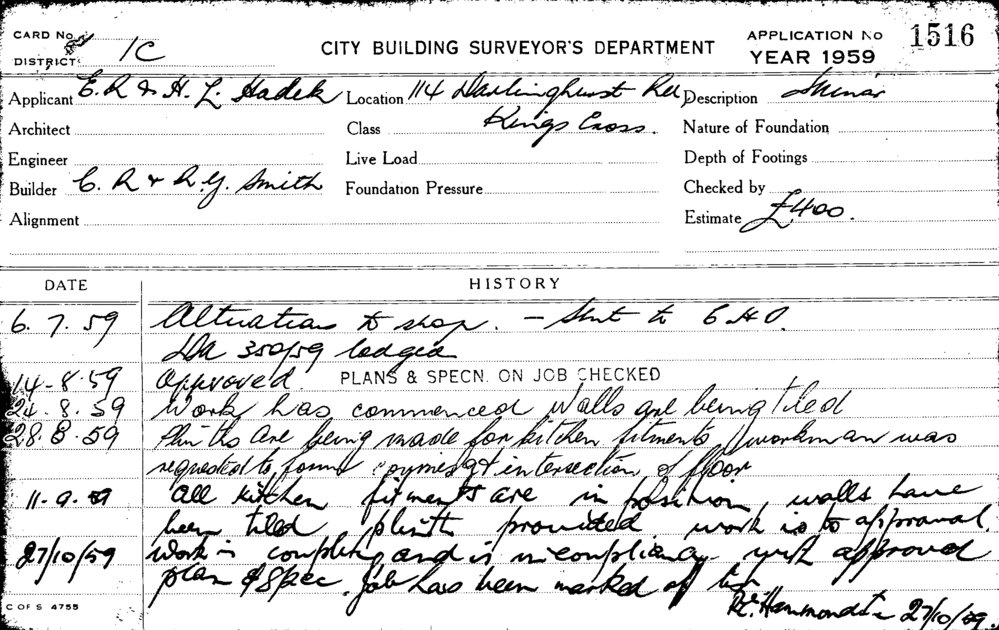 CARD No
DISTRICT 1C
CITY BUILDING SURVEYOR'S DEPARTMENT
APPLICATION No 1516
YEAR 1959
Applicant E. R & H. L Hadek Location 114 Darlinghurst Rd Description Minor
Architect Class Kings Cross. Nature of Foundation
Engineer Live Load Depth of Footings
Builder C. R & R. G. Smith Foundation Pressure Checked by
Alignment Estimate £400.
DATE HISTORY
6. 7. 59 Alterations to shop. - Sent to C.H.O.
DA 350/59 lodged
14-8-59 Approved. PLANS & SPECN. ON JOB CHECKED
24. 8. 59 Work has commenced Walls are being tiled
28. 8. 59 Plinths are being made for kitchen fitments, workman was
requested to form at intersection of floor
11-9-59 all kitchen fitments are in position, walls have
been tiled plinth provided work is to approval.
27/10/59 Work is and is in compliance with approved
plan & Spec. Job has been marked off
Hammond 27/10/59.
C OF S 4755